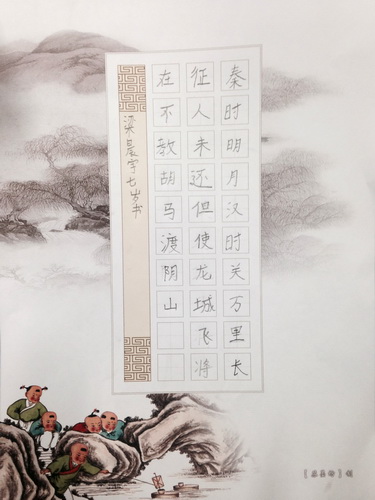 秦时明月汉时关万里长
征人未还但使龙城飞将
在不教胡马渡阴山
梁晨宇七岁书